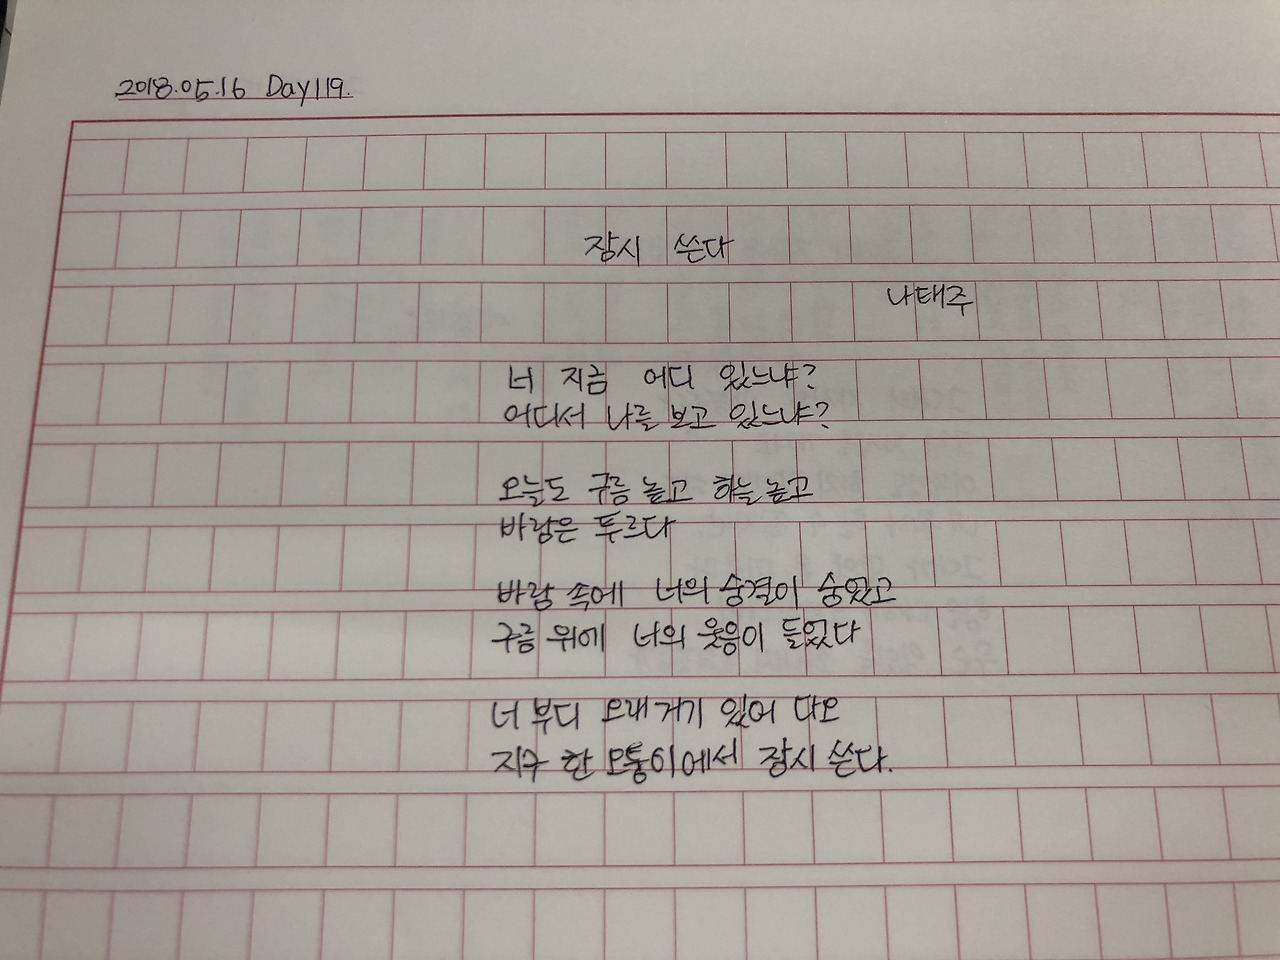 2018.05.16 Day119.
잠시 쓴다
나태주
너 지금 어디 있느냐?
어디서 나를 보고 있느냐?
오늘도 구름 높고 하늘 높고
바람은 푸르다
바람 속에 너의 숨결이 숨었고
구름 위에 너의 웃음이 들었다
너 부디 오래 거기 있어 다오
지구 한 모퉁이에서 잠시 쓴다.